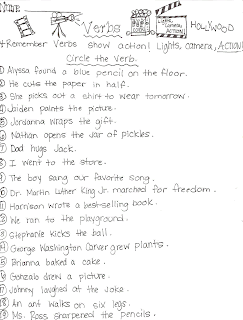 Name
Verbs
HOLLYWOOD
Lights, Camera, ACTION!
*Remember Verbs show action! Lights, camera, ACTION!
Circle the Verb.
① Alyssa found a blue pencil on the floor.
② He cuts the paper in half.
③ She picks out a shirt to wear tomorrow.
④ Jaiden paints the picture.
⑤ Jordanna wraps the gift.
⑥ Nathan opens the jar of pickles.
⑦ Dad hugs Jack.
⑧ I went to the store.
⑨ The boy sang our favorite song.
⑩ Dr. Martin Luther King Jr. marched for freedom.
⑪ Harrison wrote a best-selling book.
⑫ We ran to the playground.
⑬ Stephanie kicks the ball.
⑭ George Washington Carver grew plants.
⑮ Brianna baked a cake.
⑯ Gonzalo drew a picture.
⑰ Johnny laughed at the joke.
⑱ An ant walks on six legs.
⑲ Ms. Ross sharpened the pencils.